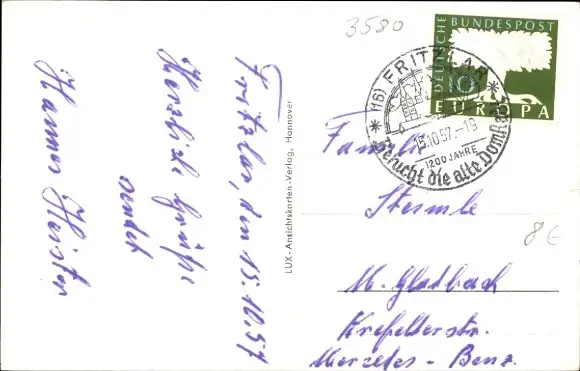 Fritzlar, den 15.10.57
Herzliche Grüße
sendet
Hannes Heister
LUX-Ansichtskarten-Verlag, Hannover
3580
DEUTSCHE BUNDESPOST
10
EUROPA
(16) FRITZLAR
15.10.57.-19
1200 JAHRE
Besucht die alte Domstadt
Familie
Stermle
M. Gladbach
Krefelderstr.
Mercedes - Benz.
8€